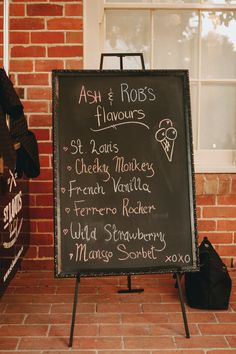 Ash & Rob's
flavours
♥ St Louis
♥ Cheeky Monkey
♥ French Vanilla
♥ Ferrero Rocher
♥ Wild Strawberry
♥ Mango Sorbet
xoxo